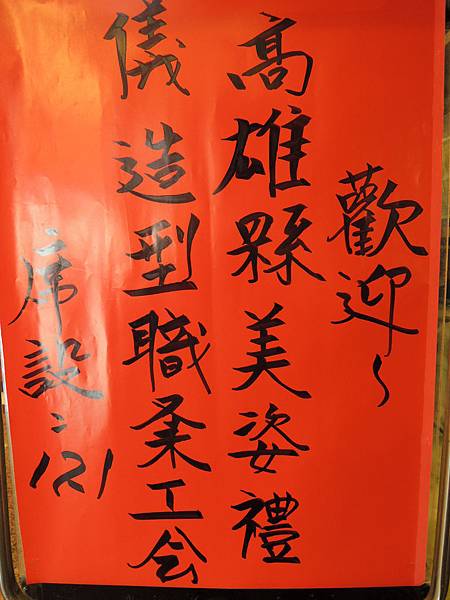 歡迎~
高雄縣美姿禮
儀造型職業工会
席設:121